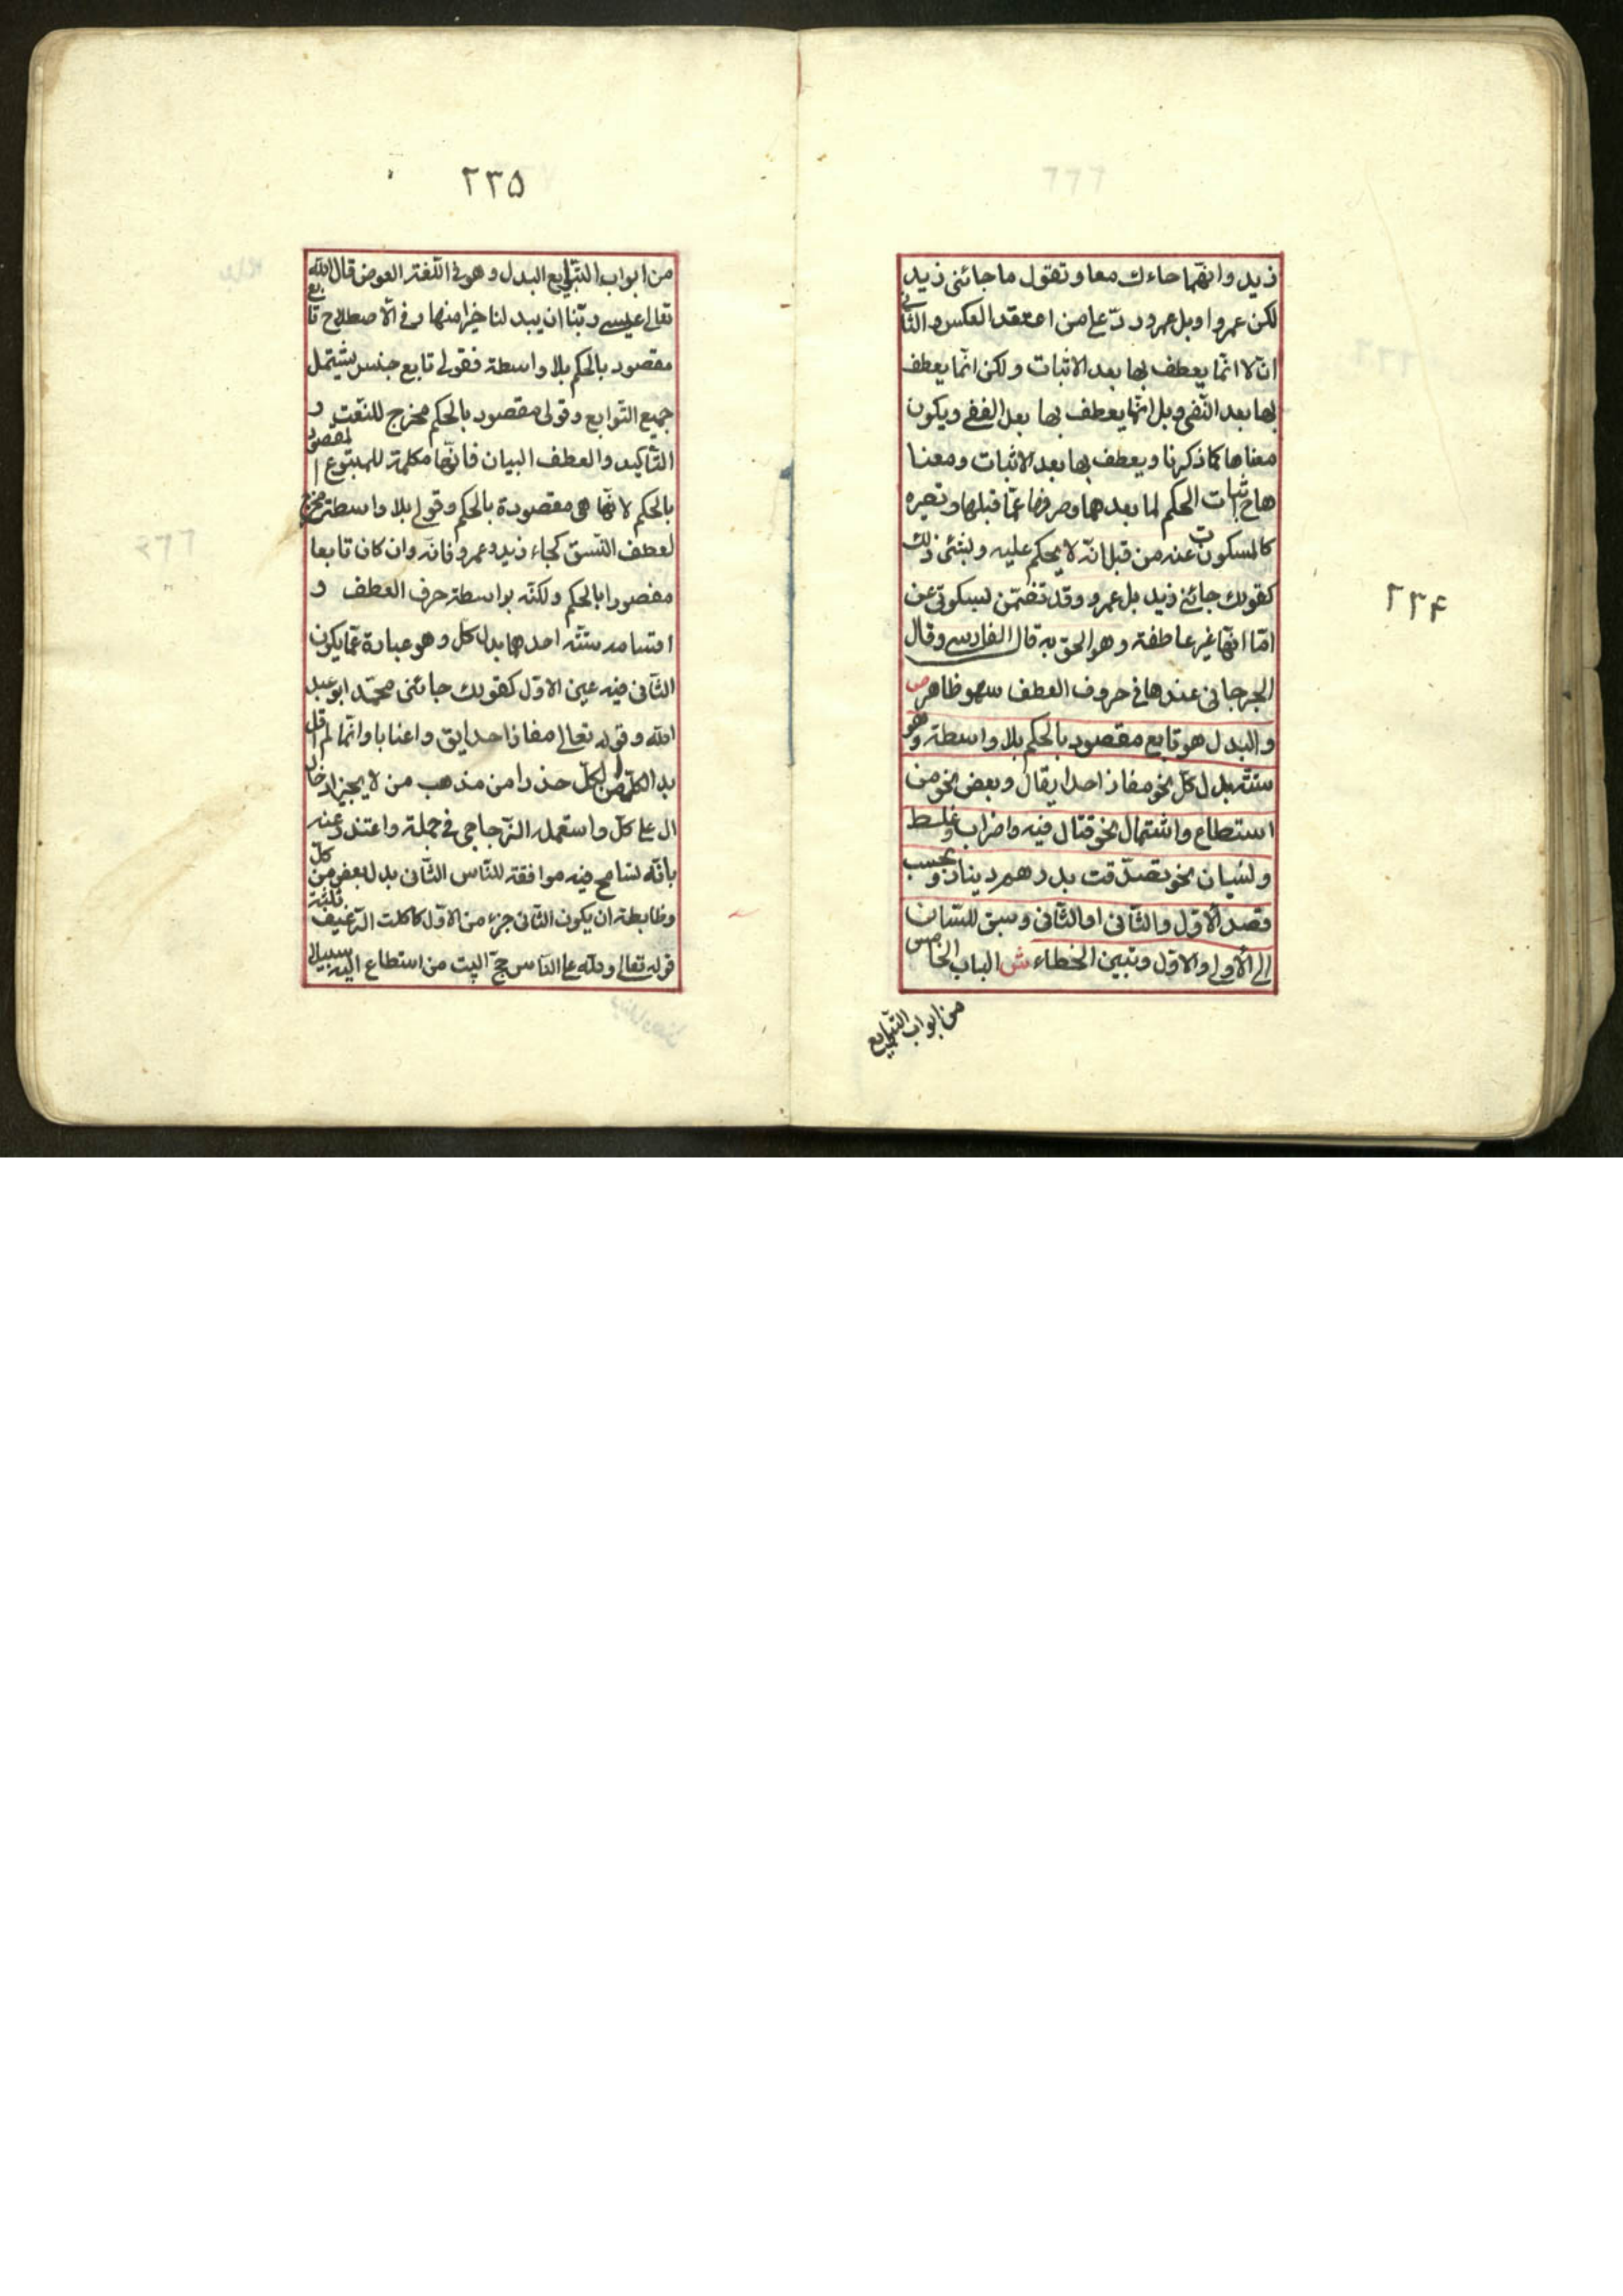 ٢٣۴
زيد وانهما جاءك معا وتقول ما جائنى زيد
لكن عمروا وبل عمرو ردّ على من اعتقد العكس والثانى
انّ لا انّما يعطف بها بعد الاثبات ولكن انّما يعطف
بها بعد النّفى وبل انّما يعطف بها بعد النفى ويكون
معناها كما ذكرنا ويعطف بها بعد الاثبات ومعنا
ها ح اثبات الحكم لما بعدها وصرفها عمّا قبلها وتصيره
كالمسكوت عنه من قبل انّه لا يحكم عليه وبشئ ذلك
كقولك جائنى زيد بل عمرو وقد تضمّن سكوتى عن
امّا انّها غير عاطفة وهو الحق به قال الفارسى وقال
الجرجانى عندها فى حروف العطف سهو ظاهر ص
والبدل هو تابع مقصود بالحكم بلا واسطة وهو
ستّة بدل كلّ نحو مفازا حدايق ال وبعض نحو من
استطاع واشتمال نحو قتال فيه واضراب وغلط
ونسيان نحو تصدّقت بدرهم دينار وبحسب
قصد الأوّل والثّانى او الثّانى وسبق للّسان
الى الأولى او الاوّل وتبين الخطاء ش الباب الخامس
من ابواب التّوابع
٢٣۵
من ابواب التّوابع البدل وهو فى اللّغة العوض قال الله
تعالى عيسى ربّنا ان يبدلنا خيرا منها وفى الأصطلاح تابع
مقصود بالحكم بلا واسطة فقولى تابع جنس يشتمل
جميع التوابع وقولى مقصود بالحكم مخرج للنّعت و
التّأكيد والعطف البيان فانّها مكلمة للمتبوع المقصود
بالحكم لا انّها هى مقصودة بالحكم وقولى بلا واسطة مخرج
لعطف النّسق كجاء زيد وعمرو فانّه وان كان تابعا
مقصورا بالحكم ولكنّه بواسطة حرف العطف و
اقسامه ستّة احدهما بدل كل وهو عبارة عمّا يكون
الثّانى فيه عين الاوّل كقولك جائنى محمّد ابو عبد
الله وقوله تعالى مفازا حدايق واعنابا وانّما لم اقل
بدل الكلّ من الكلّ حذرا من مذهب من لا يجيز ادخال
ال على كلّ واستعمله الزّجاجى فى جملة واعتذر عنه
بانّه تسامح فيه موافقة للنّاس الثّانى بدل بعض من كلّ
وظابطة ان يكون الثّانى جزء من الاوّل كاكلت الرّغيف ثلثة
قوله تعالى ولله على النّاس حجّ البيت من استطاع اليه سبيلا